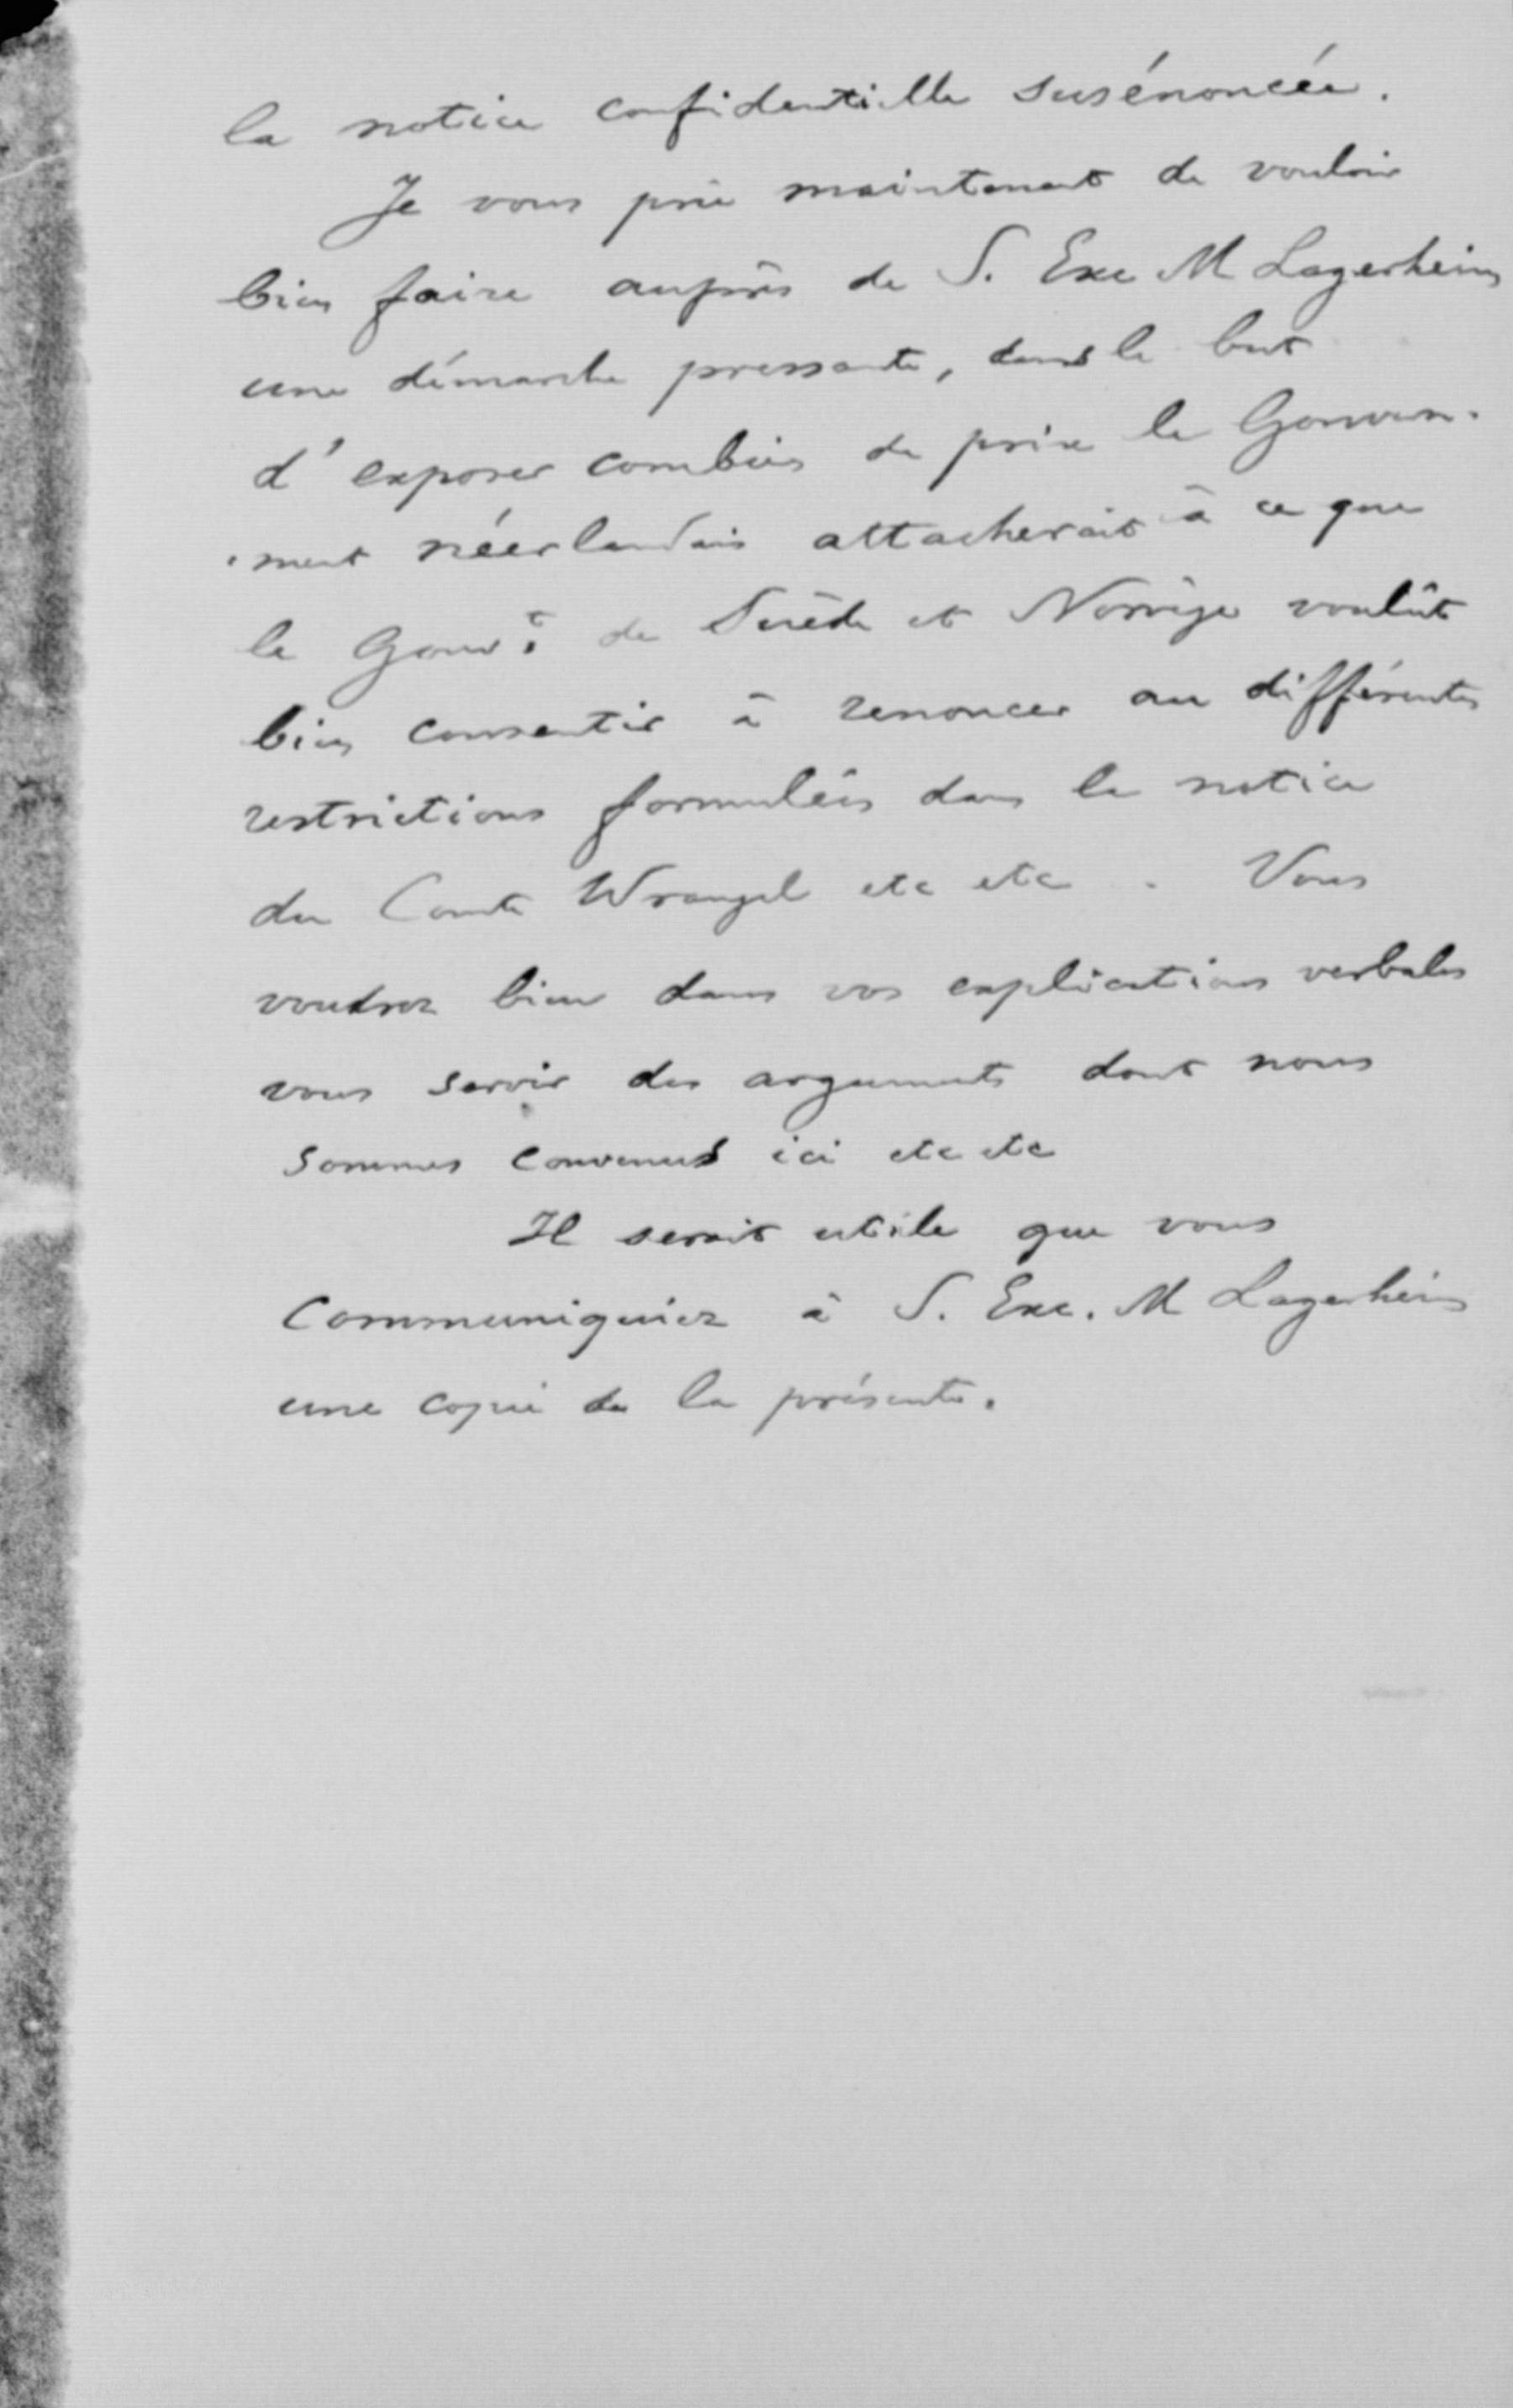 la notice confidentielle susénoncée.
Je vous prie maintenant de vouloir
bien faire auprès de S. Exc M Lagerheim
une démarche pressante, dans le but
d'exposer combien de prix le Gouvern-
-ment néerlandais attacherait à ce que
le Gouvt. de Suède et Norvège voulût
bien consentir à renoncer au différentes
restrictions formulées dans la notice
du Comte Wrangel etc etc. Vous
voudrez bien dans vos explications verbales
vous servir des arguments dont nous
sommes convenus ici etc etc
Il serait utile que vous
communiquiez à S. Exc. M Lagerheim
une copie de la présente.